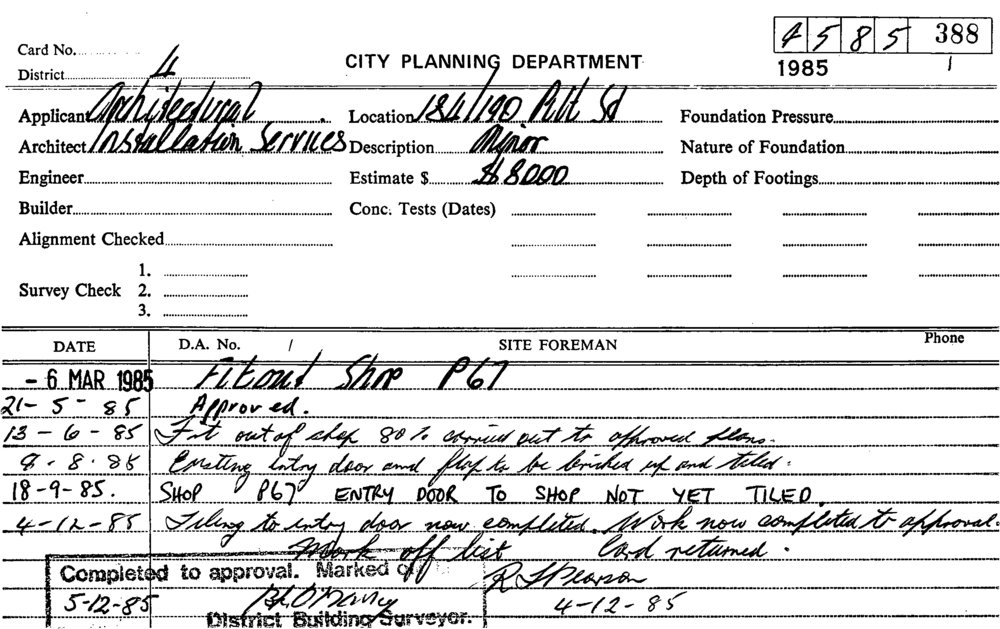 4585 388
Card No.
District 4
CITY PLANNING DEPARTMENT
1985 /
Applicant Architectural
Location 184/190 Pitt St
Foundation Pressure
Architect Installation Services
Description Minor
Nature of Foundation
Engineer
Estimate $ $8000
Depth of Footings
Builder
Conc. Tests (Dates)
Alignment Checked
1.
Survey Check 2.
3.
DATE D.A. No. / SITE FOREMAN Phone
- 6 MAR 1985 Fitout Shop P67
21-5-85 Approved.
13-6-85 Fit out of shop 80% carried out to approved plans.
8.8.85 Existing entry door and flap to be bricked up and tiled.
18-9-85. SHOP P67 ENTRY DOOR TO SHOP NOT YET TILED.
4-12-85 Tiling to entry door now completed. Work now completed to approval.
Mark off list Card returned.
Completed to approval. Marked off
R J Pearson
5-12-85
4-12-85
District Building Surveyor.